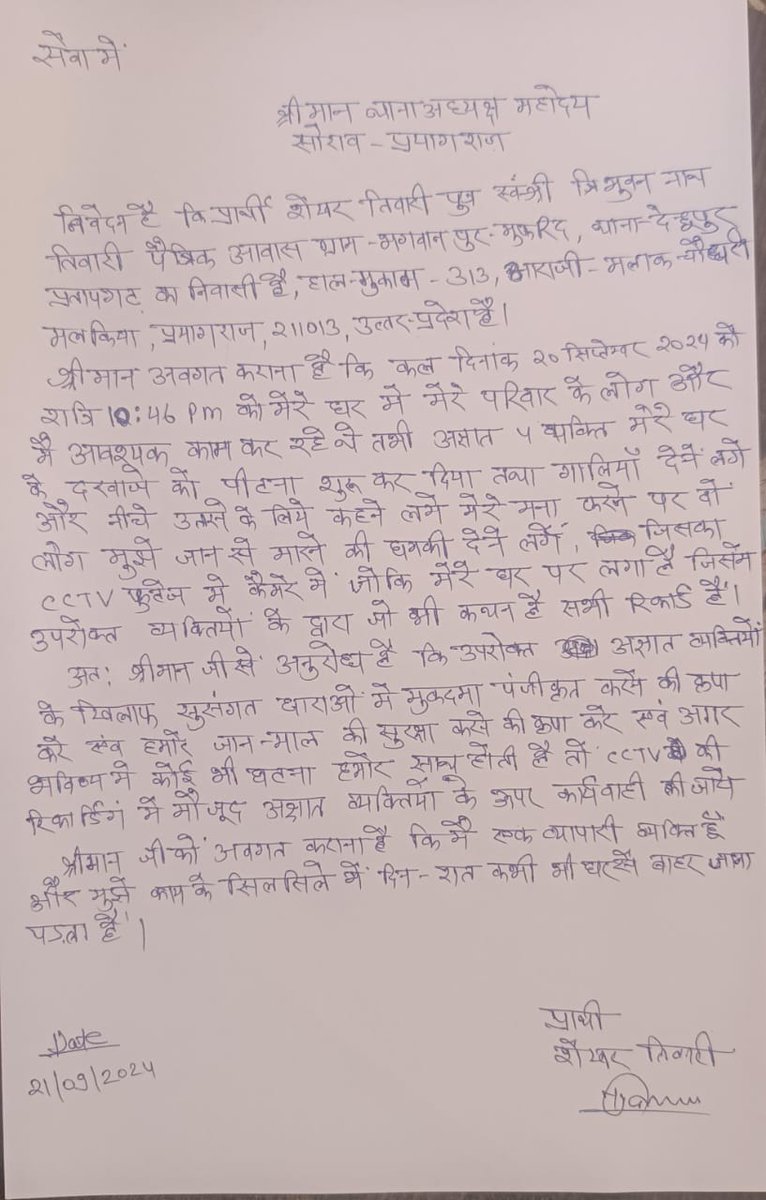 सेवा में
श्रीमान थानाअध्यक्ष महोदय
सोराव - प्रयागराज
निवेदन है कि प्रार्थी शेखर तिवारी पुत्र स्व॰श्री त्रिभुवन नाथ
तिवारी पैत्रिक आवास ग्राम - भगवानपुर - मुफरिद, थाना - देल्हूपुर
प्रतापगढ़ का निवासी है, हाल-मुकाम - 313, आराजी - मलाक - चौधरी
मलकिया, प्रयागराज, 211013, उत्तर-प्रदेश है।
श्रीमान अवगत कराना है कि कल दिनांक 20 सितेम्बर 2024 को
रात्रि 10:46 Pm को मेरे घर में मेरे परिवार के लोग और
मैं आवश्यक काम कर रहे थे तभी अज्ञात 4 व्यक्ति मेरे घर
के दरवाजे को पीटना शुरू कर दिया तथा गालियाँ देने लगे
और नीचे उतरने के लिये कहने लगे मेरे मना करने पर वो
लोग मुझे जान से मारने की धमकी देने लगें, जिसका
CCTV फुटेज मे कैमरे में जोकि मेरे घर पर लगा है जिसमें
उपरोक्त व्यक्तियों के द्वारा जो भी कथन है सभी रिकार्ड है।
अतः श्रीमान जी से अनुरोध है कि उपरोक्त अज्ञात व्यक्तियों
के खिलाफ सुसंगत धाराओं में मुकदमा पंजीकृत करने की कृपा
करें एवं हमारे जान-माल की सुरक्षा करने की कृपा करें एवं अगर
भविष्य मे कोई भी घटना हमारे साथ होती है तो CCTV की
रिकार्डिंग में मौजूद अज्ञात व्यक्तियों के ऊपर कार्यवाही की जाये
श्रीमान जी को अवगत कराना है कि मैं एक व्यापारी व्यक्ति हूँ
और मुझे काम के सिलसिले में दिन-रात कभी भी घर से बाहर जाना
पड़ता है।
प्रार्थी
Date
शेखर तिवारी
21/09/2024